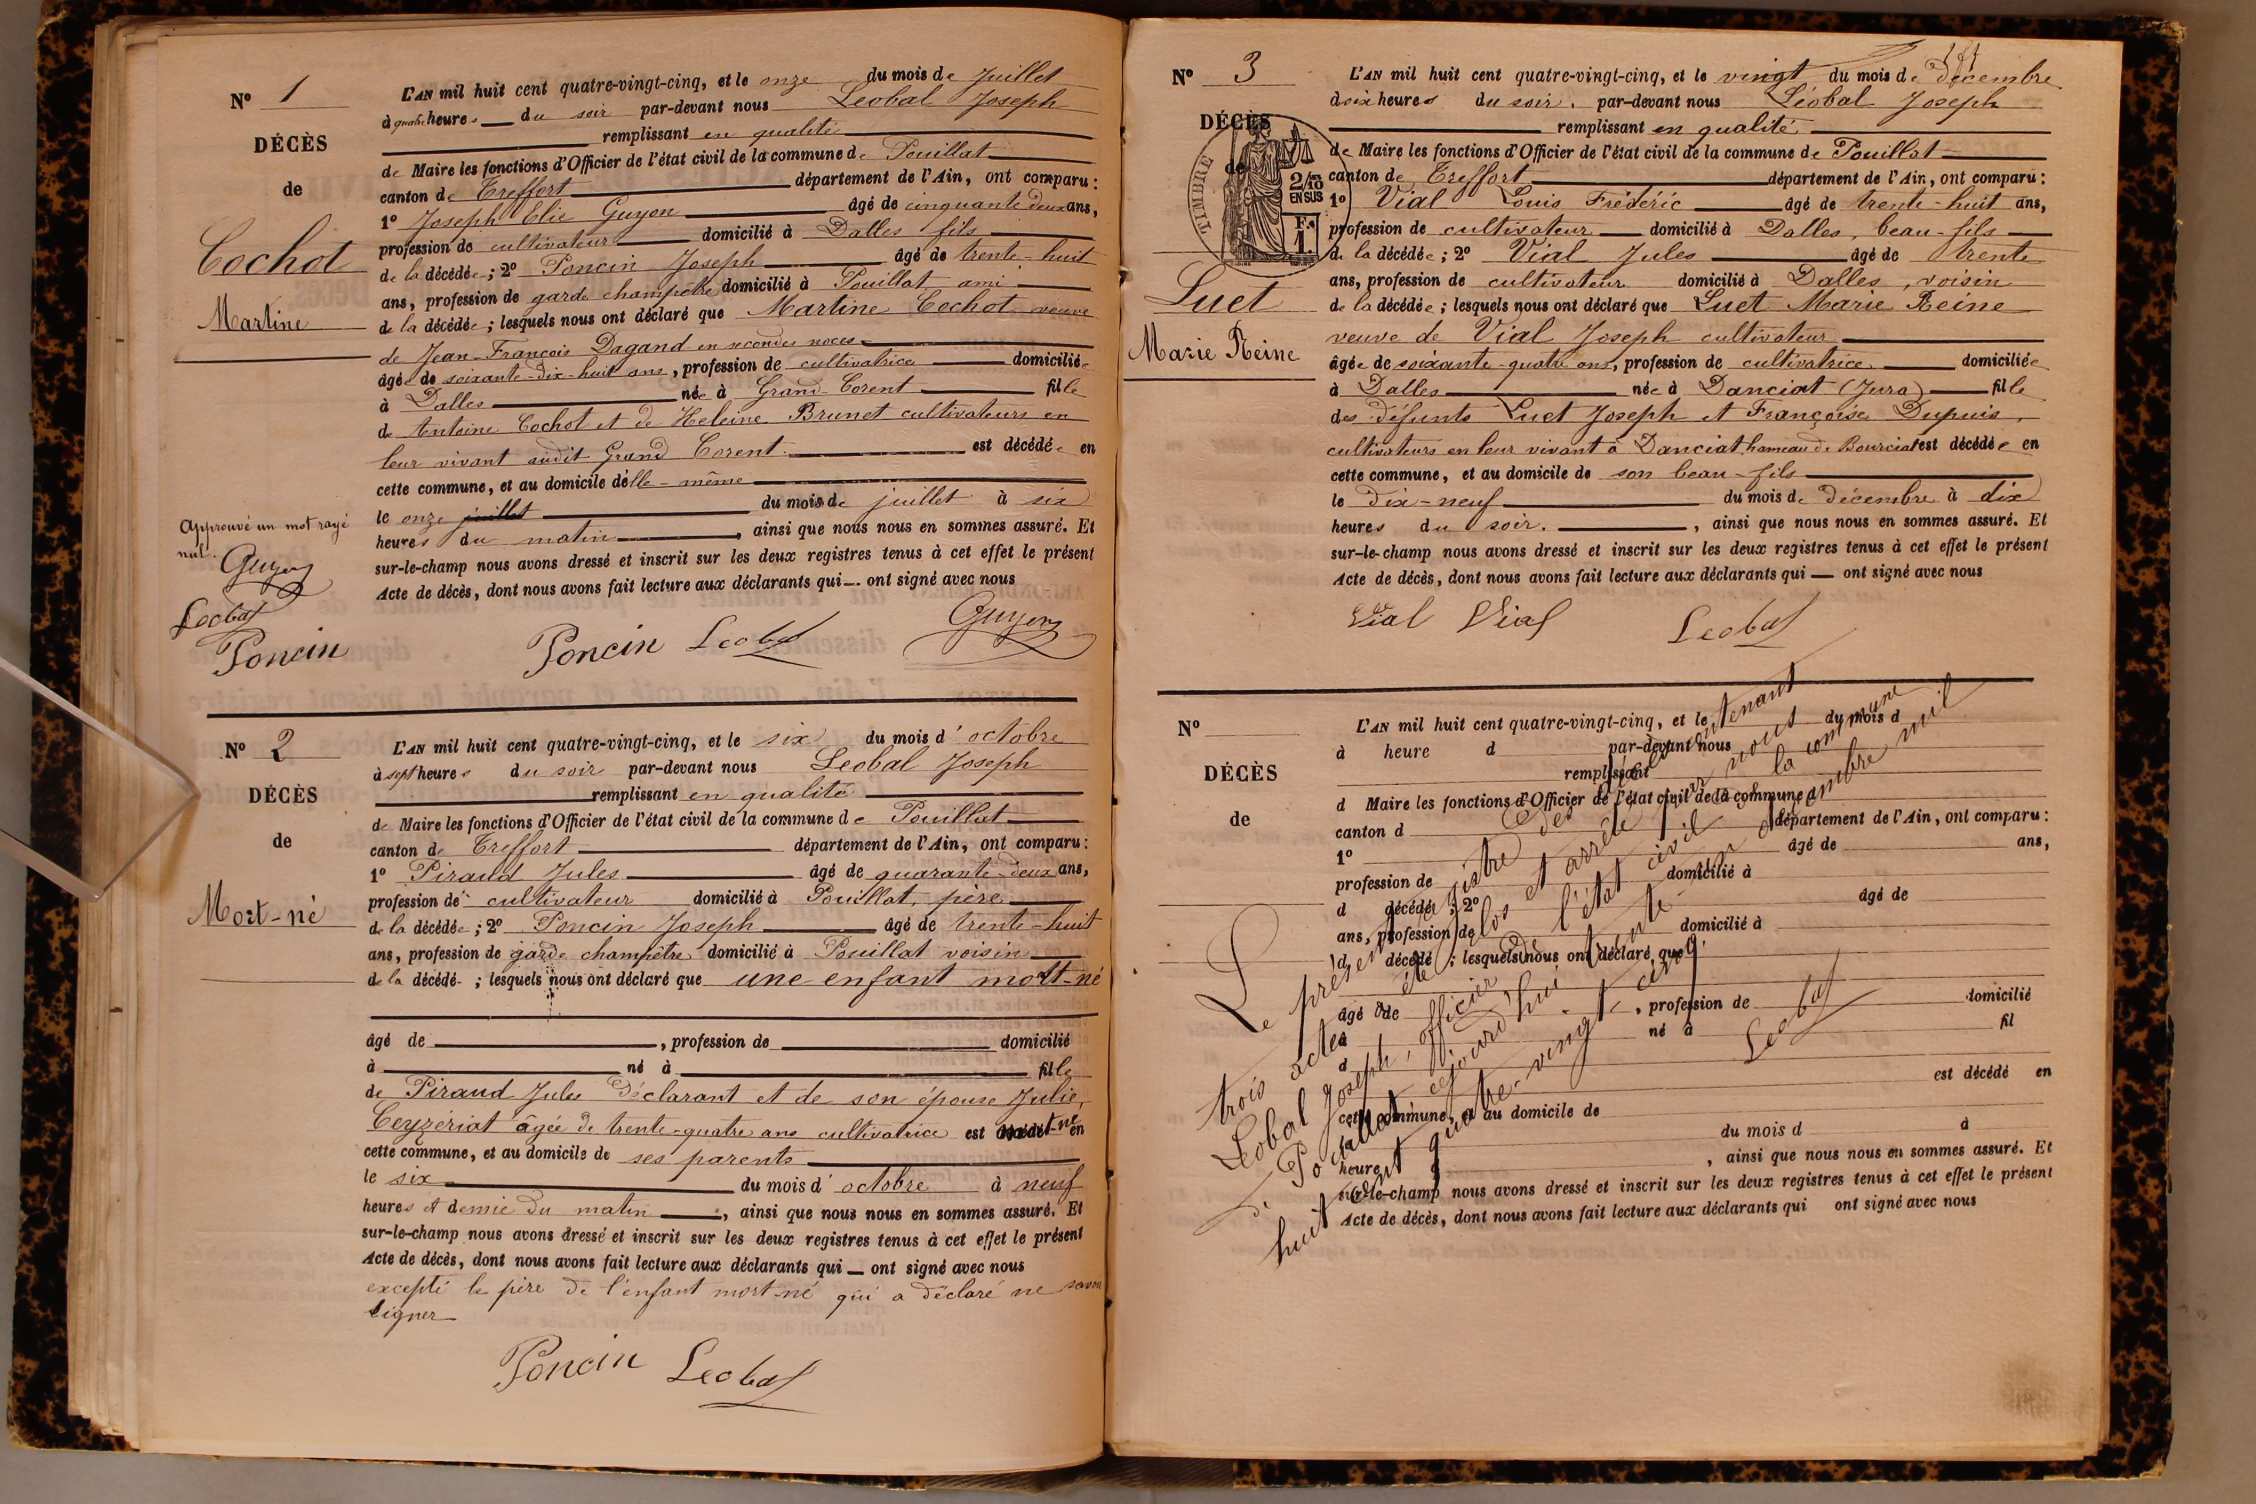 N° 1
DÉCÈS
de
Cochot
Martine
L'AN mil huit cent quatre-vingt-cinq, et le onze du mois de Juillet
à quatre heures du soir par-devant nous Leobal Joseph
remplissant en qualité
de Maire les fonctions d'Officier de l'état civil de la commune de Pouillat
canton de Treffort département de l'Ain, ont comparu :
1° Joseph Elie Guyon âgé de cinquante deux ans,
profession de cultivateur domicilié à Dalles fils
de la décédée ; 2° Poncin Joseph âgé de trente-huit
ans, profession de garde champêtre domicilié à Pouillat ami
de la décédée ; lesquels nous ont déclaré que Martine Cochot veuve
de Jean-François Dagand en secondes noces
âgée de soixante-dix-huit ans, profession de cultivatrice domiciliée
à Dalles née à Grand-Corent fille
de Antoine Cochot et de Heleine Brunet cultivateurs en
leur vivant audit Grand Corent est décédée en
cette commune, et au domicile d'elle-même
le onze juillet du mois de juillet à six
heures du matin, ainsi que nous nous en sommes assuré. Et
sur-le-champ nous avons dressé et inscrit sur les deux registres tenus à cet effet le présent
Acte de décès, dont nous avons fait lecture aux déclarants qui ont signé avec nous
Approuvé un mot rayé
nul.
Guyon
Leobal
Poncin
Poncin Leobal Guyon
N° 2
DÉCÈS
de
Mort-né
L'AN mil huit cent quatre-vingt-cinq, et le six du mois d'octobre
à sept heures du soir par-devant nous Leobal Joseph
remplissant en qualité
de Maire les fonctions d'Officier de l'état civil de la commune de Pouillat
canton de Treffort département de l'Ain, ont comparu :
1° Piraud Jules âgé de quarante-deux ans,
profession de cultivateur domicilié à Pouillat, père
de la décédée ; 2° Poncin Joseph âgé de trente-huit
ans, profession de garde champêtre domicilié à Pouillat voisin
de la décédé ; lesquels nous ont déclaré que une enfant mort-né
âgé de , profession de domicilié
à né à fille
de Piraud Jules Déclarant et de son épouse Julie
Ceyzériat âgée de trente-quatre ans cultivatrice est mort-né en
cette commune, et au domicile de ses parents
le six du mois d'octobre à neuf
heures et demie du matin, ainsi que nous nous en sommes assuré. Et
sur-le-champ nous avons dressé et inscrit sur les deux registres tenus à cet effet le présent
Acte de décès, dont nous avons fait lecture aux déclarants qui ont signé avec nous
excepté le père de l'enfant mort-né qui a déclaré ne savoir
signer
Poncin Leobal
N° 3
DÉCÈS
de
TIMBRE
2/10
EN SUS
F.
1.
Luet
Marie Reine
L'AN mil huit cent quatre-vingt-cinq, et le vingt du mois de décembre
à six heures du soir. par-devant nous Léobal Joseph
remplissant en qualité
de Maire les fonctions d'Officier de l'état civil de la commune de Pouillat
canton de Treffort département de l'Ain, ont comparu :
1° Vial Louis Frédéric âgé de trente-huit ans,
profession de cultivateur domicilié à Dalles, beau-fils
de la décédée ; 2° Vial Jules âgé de trente
ans, profession de cultivateur domicilié à Dalles, voisin
de la décédée ; lesquels nous ont déclaré que Luet Marie Reine
veuve de Vial Joseph cultivateur
âgée de soixante-quatre ans, profession de cultivatrice domiciliée
à Dalles née à Danciat (Jura) fille
des défunts Luet Joseph et Françoise Dupuis,
cultivateurs en leur vivant à Danciat hameau de Bourciat est décédée en
cette commune, et au domicile de son beau-fils
le dix-neuf du mois de décembre à dix
heures du soir. , ainsi que nous nous en sommes assuré. Et
sur-le-champ nous avons dressé et inscrit sur les deux registres tenus à cet effet le présent
Acte de décès, dont nous avons fait lecture aux déclarants qui ont signé avec nous
Vial Vial Leobal
N°
DÉCÈS
de
L'AN mil huit cent quatre-vingt-cinq, et le du mois d
à heure d par-devant nous
remplissant
d Maire les fonctions d'Officier de l'état civil de la commune d
canton d département de l'Ain, ont comparu :
1° âgé de ans,
profession de domicilié à
d décédé ; 2° âgé de
ans, profession de domicilié à
d décédé ; lesquels nous ont déclaré que
âgé de , profession de domicilié
à né à fil
d
est décédé en
cette commune, et au domicile de
le du mois d à
heure , ainsi que nous nous en sommes assuré. Et
sur-le-champ nous avons dressé et inscrit sur les deux registres tenus à cet effet le présent
Acte de décès, dont nous avons fait lecture aux déclarants qui ont signé avec nous
Le présent registre des décès contenant
trois actes a été clos et arrêté par nous
Leobal Joseph, officier de l'état civil de la commune
de Pouillat cejourd'hui trente un décembre mil
huit cent quatre-vingt-cinq.
Leobal